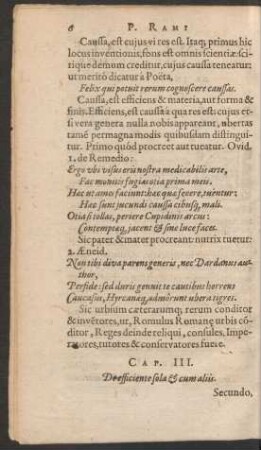 6 P. RAMI
Caussa, est cujus vi res est. Itaq; primus hic
locus inventionis, fons est omnis scientiæ: sci-
rique demum creditur, cujus caussa teneatur:
ut meritò dicatur à Poëta,
Felix qui potuit rerum cognoscere caussas.
Caussa, est efficiens & materia, aut forma &
finis. Efficiens, est caussa à qua res est: cujus et-
si vera genera nulla nobis appareant, ubertas
tamē permagna modis quibusdam distingui-
tur. Primo quòd procreet aut tueatur. Ovid.
1. de Remedio:
Ergo ubi visus eris nostra medicabilis arte,
Fac monitis fugias otia prima meis.
Hæc ut ames faciunt: hæc quæ fecere, tuentur:
Hæc sunt jucundi caussa cibusq; mali.
Otia si tollas, periere Cupidinis arcus:
Contemptæq; jacent & sine luce faces.
Sic pater & mater procreant: nutrix tuetur:
2. Æneid.
Non tibi diva parens generis, nec Dardanus au-
thor,
Perfide: sed duris genuit te cautibus horrens
Caucasus, Hyrcanæq; admôrunt ubera tigres.
Sic urbium cæterarumq; rerum conditor
& invētores, ut, Romulus Romanę urbis cō-
ditor, Reges deinde reliqui, consules, Impe-
ratores, tutores & conservatores fuere.
CAP. III.
De efficiente sola & cum aliis.
Secundo,